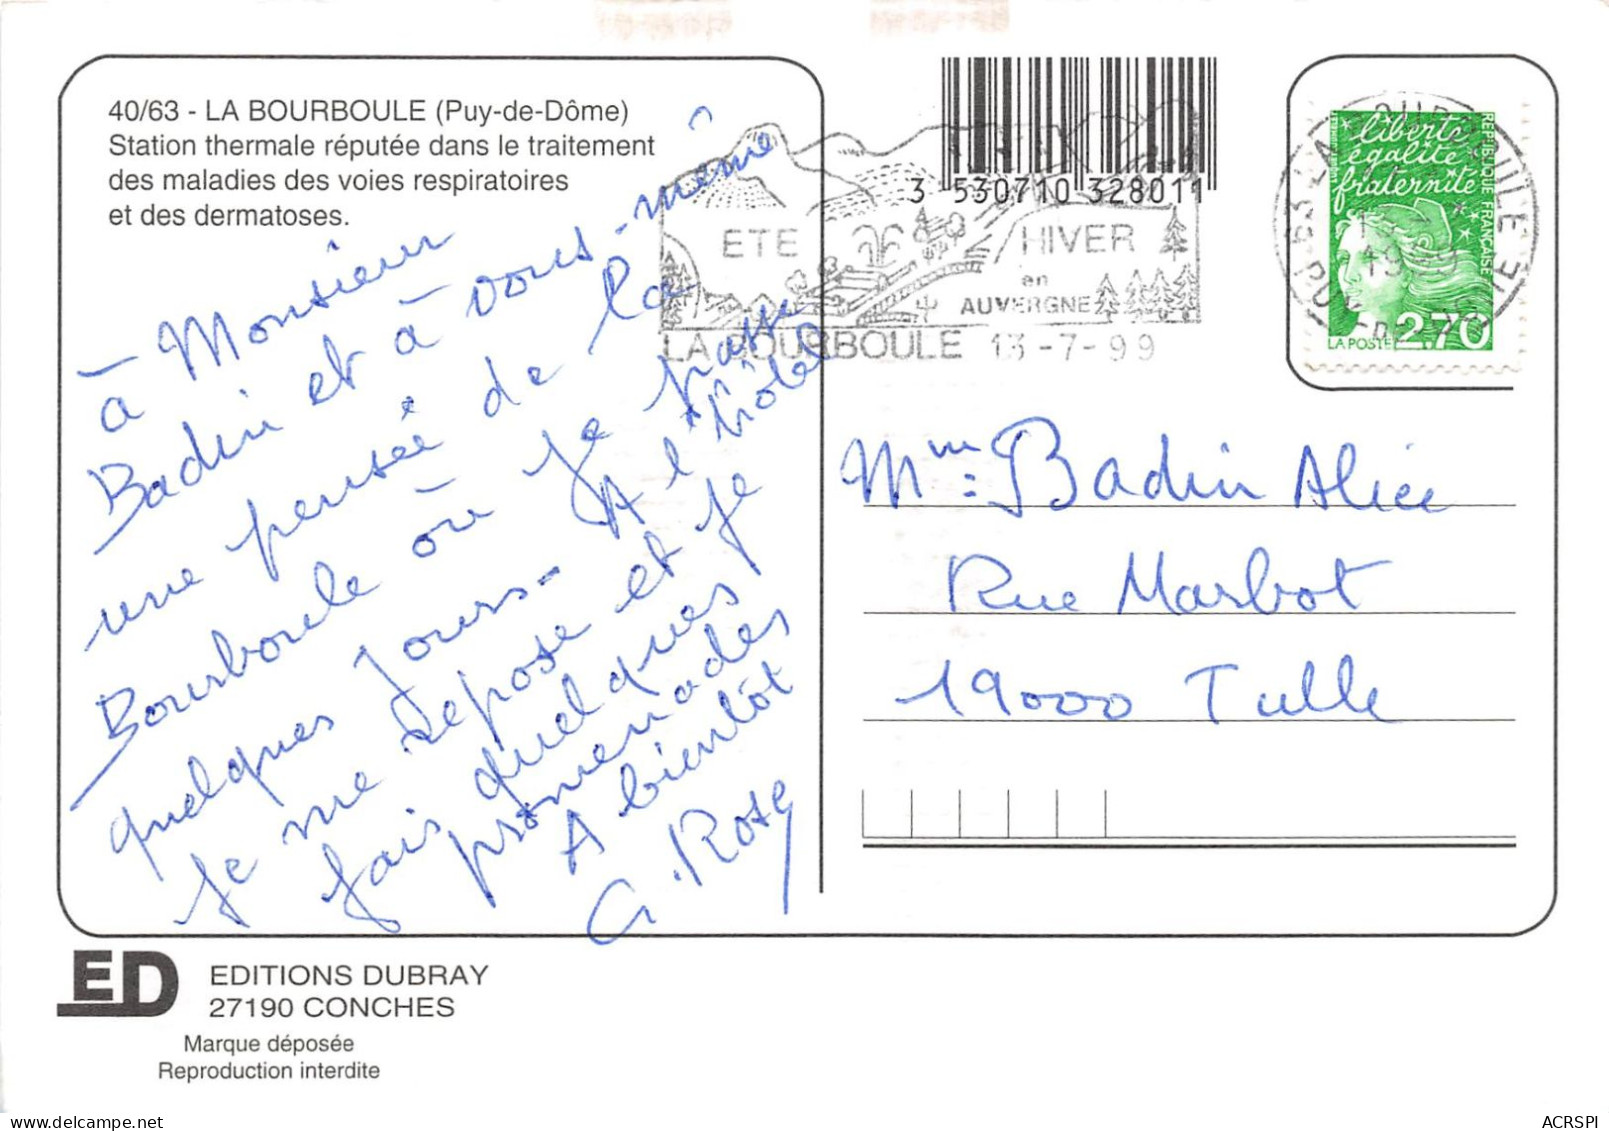 40/63 - LA BOURBOULE (Puy-de-Dôme)
Station thermale réputée dans le traitement
des maladies des voies respiratoires
et des dermatoses.
à Monsieur
Badin et à vous-même
une pensée de la
Bourboule où je passe
quelques jours - A l'hôtel
je me repose et je
fais quelques
promenades
A bientôt
G. Rose
3 530710 328011
ETE HIVER
en
AUVERGNE
LA BOURBOULE 13-7-99
63 LA BOURBOULE
PUY DE DOME
1999
liberté
égalité
fraternité
REPUBLIQUE FRANÇAISE
LA POSTE 2,70
Mme: Badin Alice
Rue Marbot
19000 Tulle
ED
EDITIONS DUBRAY
27190 CONCHES
Marque déposée
Reproduction interdite
ACRSPI